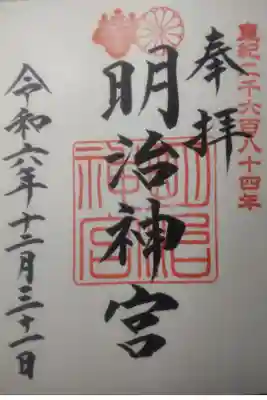 皇紀二千六百八十四年
奉拝
明治神宮
明治神宮
令和六年十二月三十一日